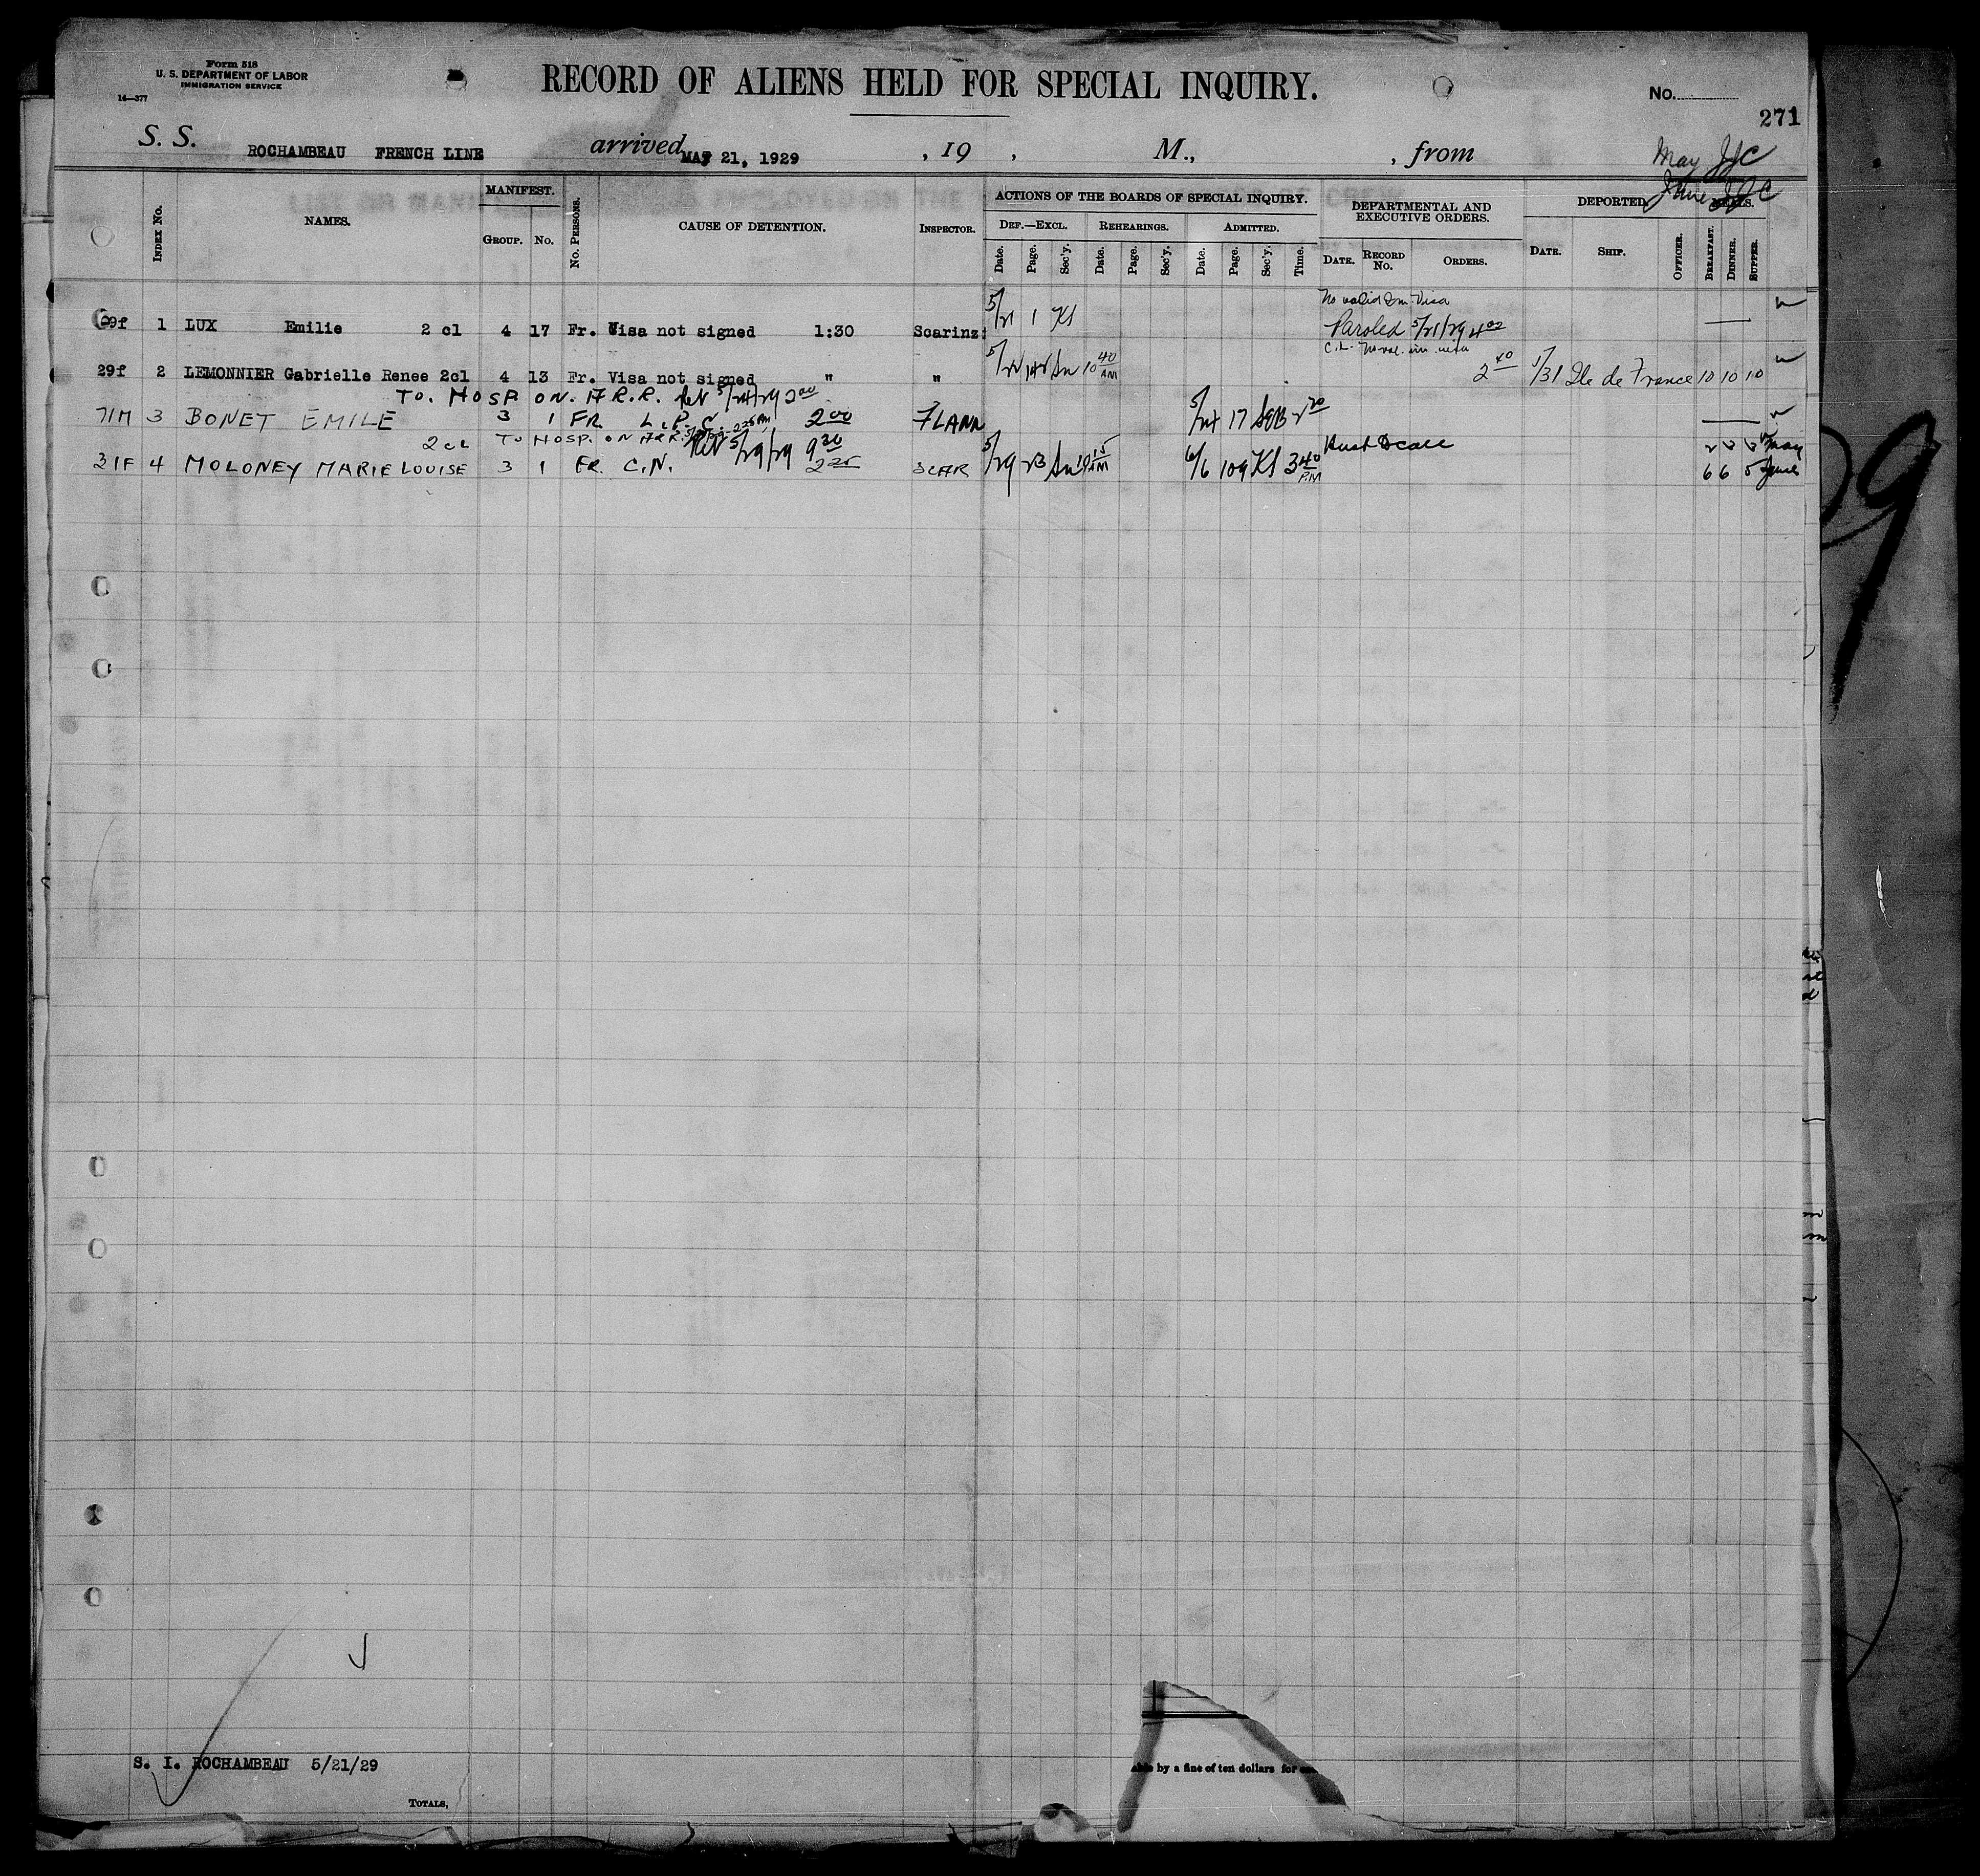 Form 518
U. S. DEPARTMENT OF LABOR
IMMIGRATION SERVICE
14—377
RECORD OF ALIENS HELD FOR SPECIAL INQUIRY.
No.
271
S. S. ROCHAMBEAU FRENCH LINE arrived MAY 21, 1929 , 19 , M., , from
May JJC
June JJC
INDEX No. NAMES. MANIFEST. GROUP. No. No. PERSONS. CAUSE OF DETENTION. INSPECTOR. ACTIONS OF THE BOARDS OF SPECIAL INQUIRY. DEF.—EXCL. Date. Page. Sec'y. REHEARINGS. Date. Page. Sec'y. ADMITTED. Date. Page. Sec'y. Time. DEPARTMENTAL AND EXECUTIVE ORDERS. DATE. RECORD No. ORDERS. DEPORTED. DATE. SHIP. OFFICER. MEALS. BREAKFAST. DINNER. SUPPER.
No valid Im. Visa
29f 1 LUX Emilie 2 cl 4 17 Fr. Visa not signed 1:30 Scarinzi 5/21 1 Kl Paroled 5/21/29 4 00
29f 2 LEMONNIER Gabrielle Renee 2cl 4 13 Fr. Visa not signed " " 10 40 AM 2 40 Ile de France 10 10 10
TO. HOSP ON. ARR. Ret 5/24/29 2 00
71M 3 BONET EMILE 3 1 FR L.P.C. 2 00 FLANN 5/24 17
2 cl TO HOSP. ON ARR. Ret 5/29/29 9 30
31F 4 MOLONEY MARIE LOUISE 3 1 FR. C.N. 2 25 SCAR 5/29 23 6/6 109 Kl 3 40 P.M 6 6 5 June
May
S. I. ROCHAMBEAU 5/21/29
TOTALS,
by a fine of ten dollars for